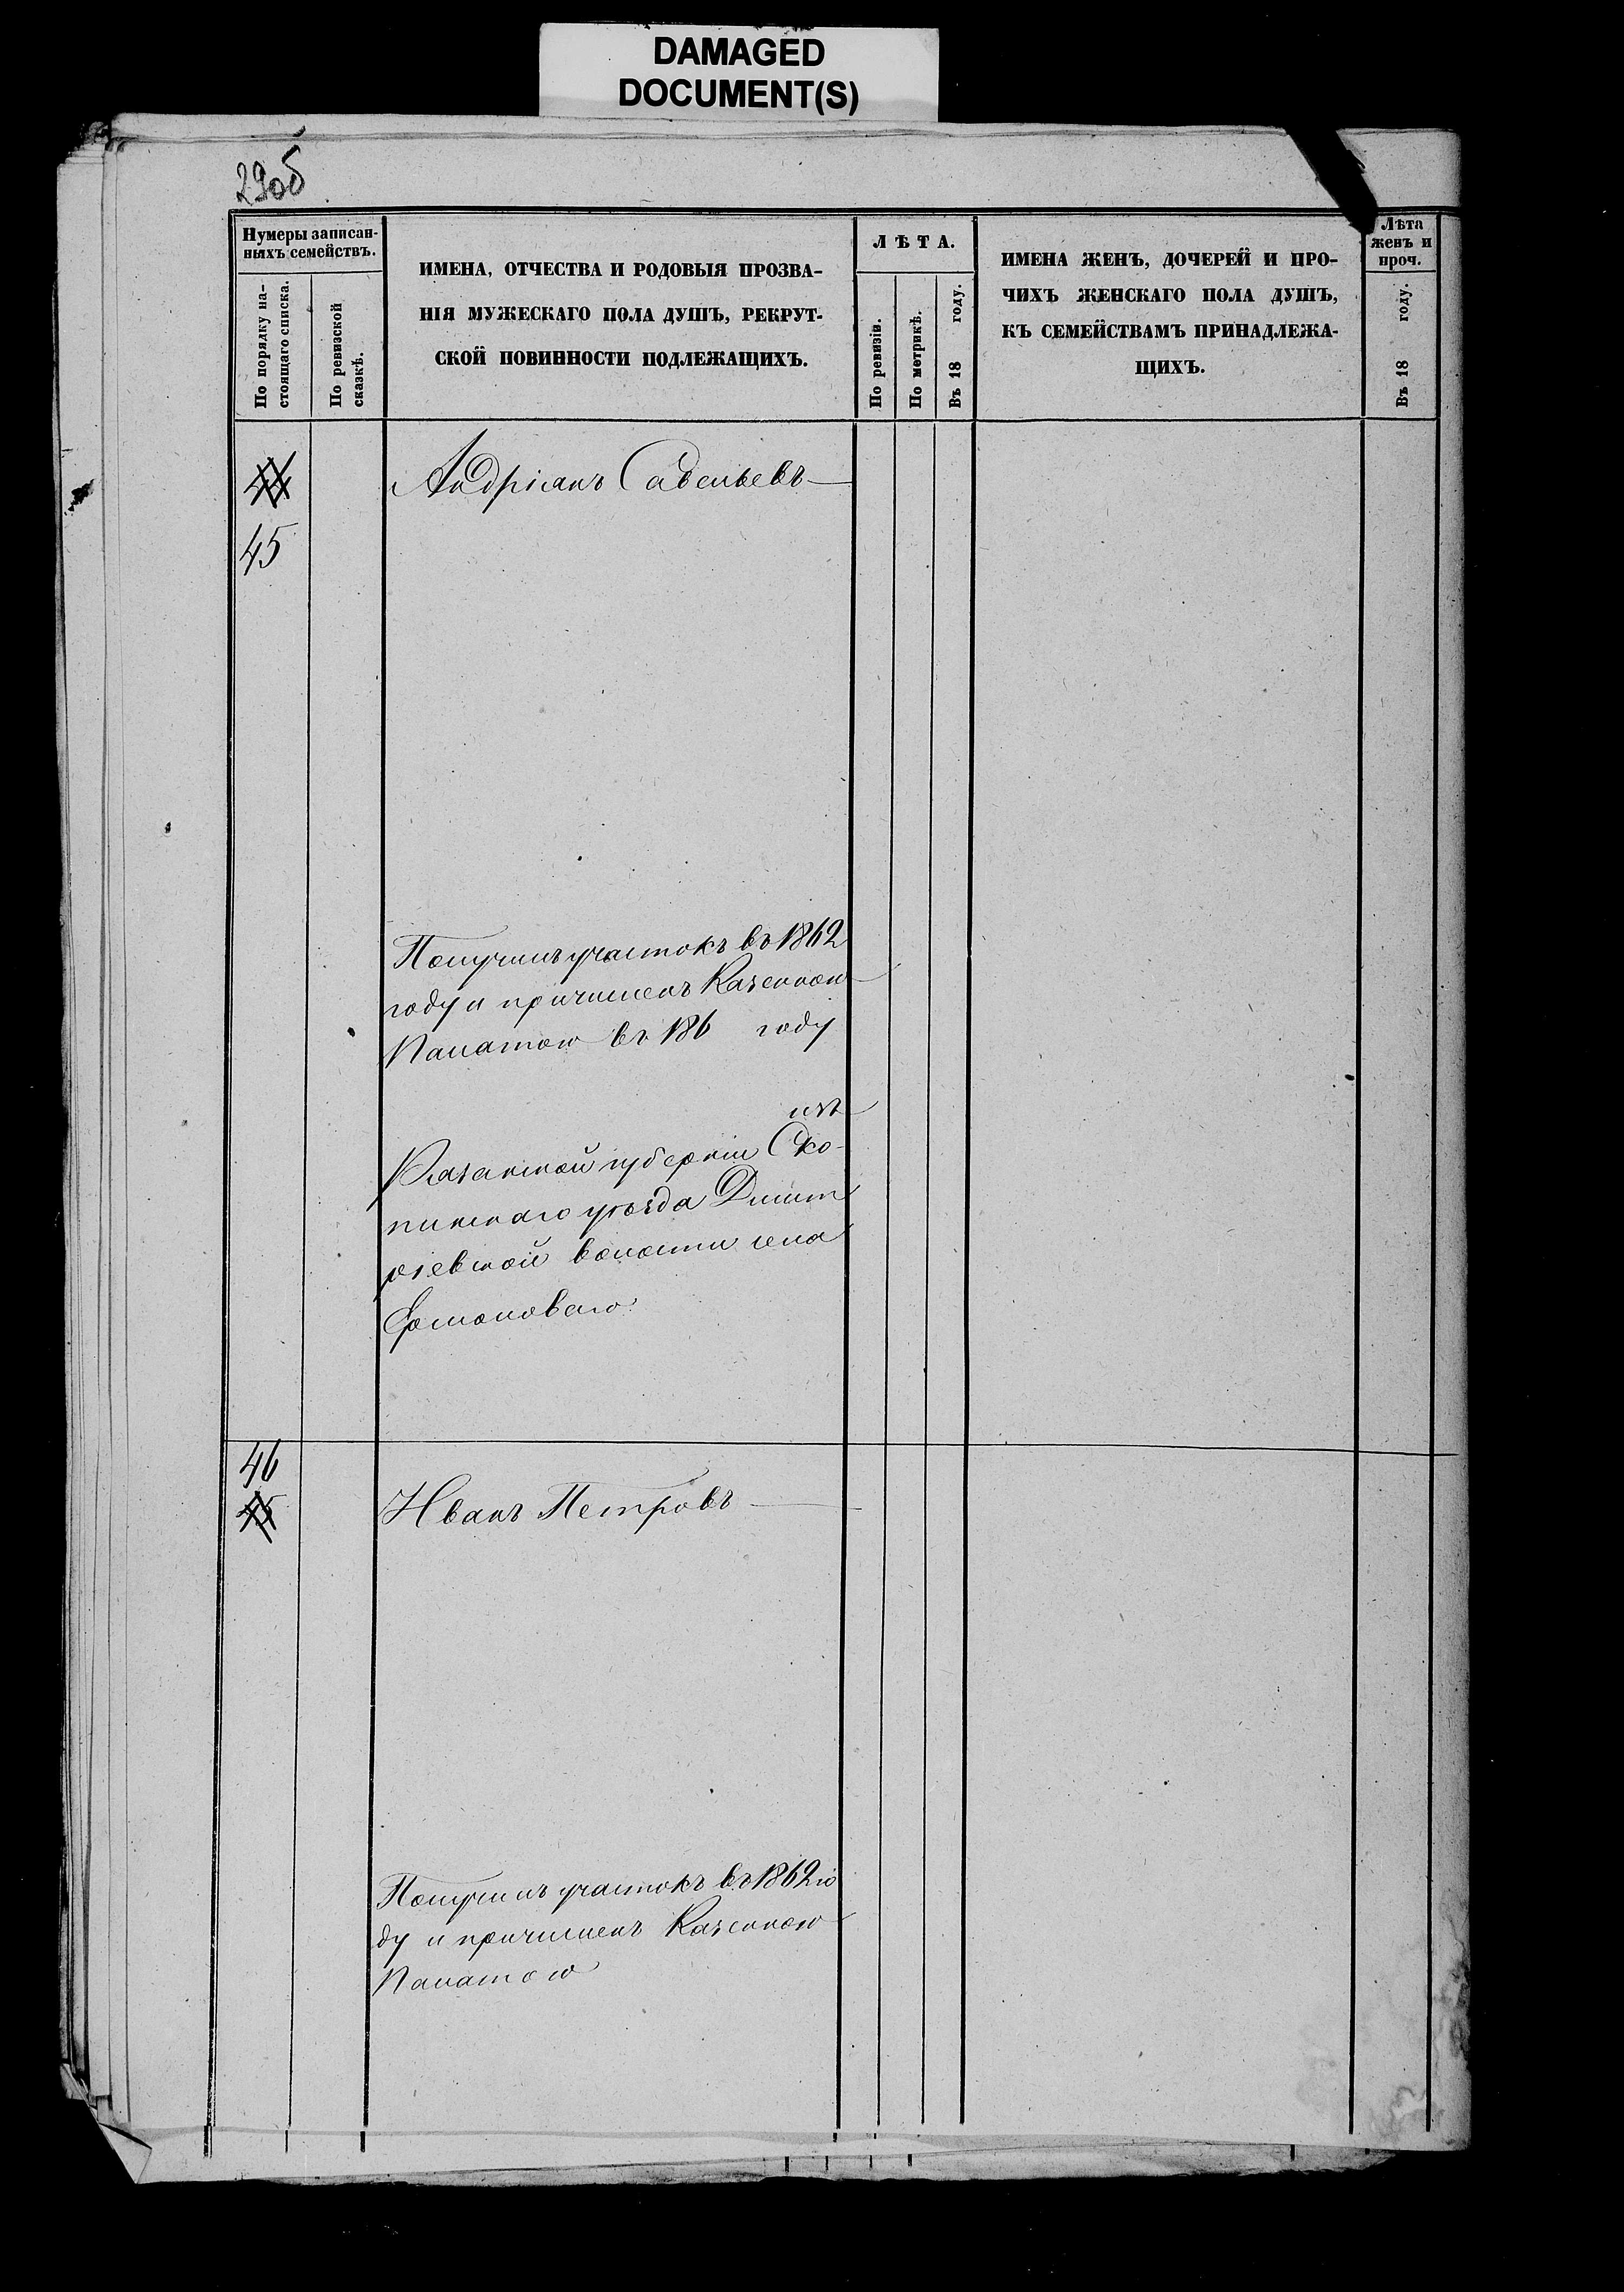 DAMAGED
DOCUMENT(S)
29об
Нумеры записан-
ныхъ семействъ.
По порядку на-
стоящаго списка.
По ревизской
сказкѣ.
ИМЕНА, ОТЧЕСТВА И РОДОВЫЯ ПРОЗВА-
НІЯ МУЖЕСКАГО ПОЛА ДУШЪ, РЕКРУТ-
СКОЙ ПОВИННОСТИ ПОДЛЕЖАЩИХЪ.
ЛѢТА.
По ревизіи.
По метрикѣ.
Въ 18 году.
ИМЕНА ЖЕНЪ, ДОЧЕРЕЙ И ПРО-
ЧИХЪ ЖЕНСКАГО ПОЛА ДУШЪ,
КЪ СЕМЕЙСТВАМЪ ПРИНАДЛЕЖА-
ЩИХЪ.
Лѣта
женъ и
проч.
Въ 18 году.
44
Андріанъ Савельевъ
45
Получилъ участокъ въ 1862
году и причисленъ Казенною
Палатою въ 186 году
изъ
Рязанской губерніи Ско-
пинскаго уѣзда Дмит
ріевской волости села
46
45
Иванъ Петровъ
Получилъ участокъ въ 1862 го
ду и причисленъ Казенною
Палатою